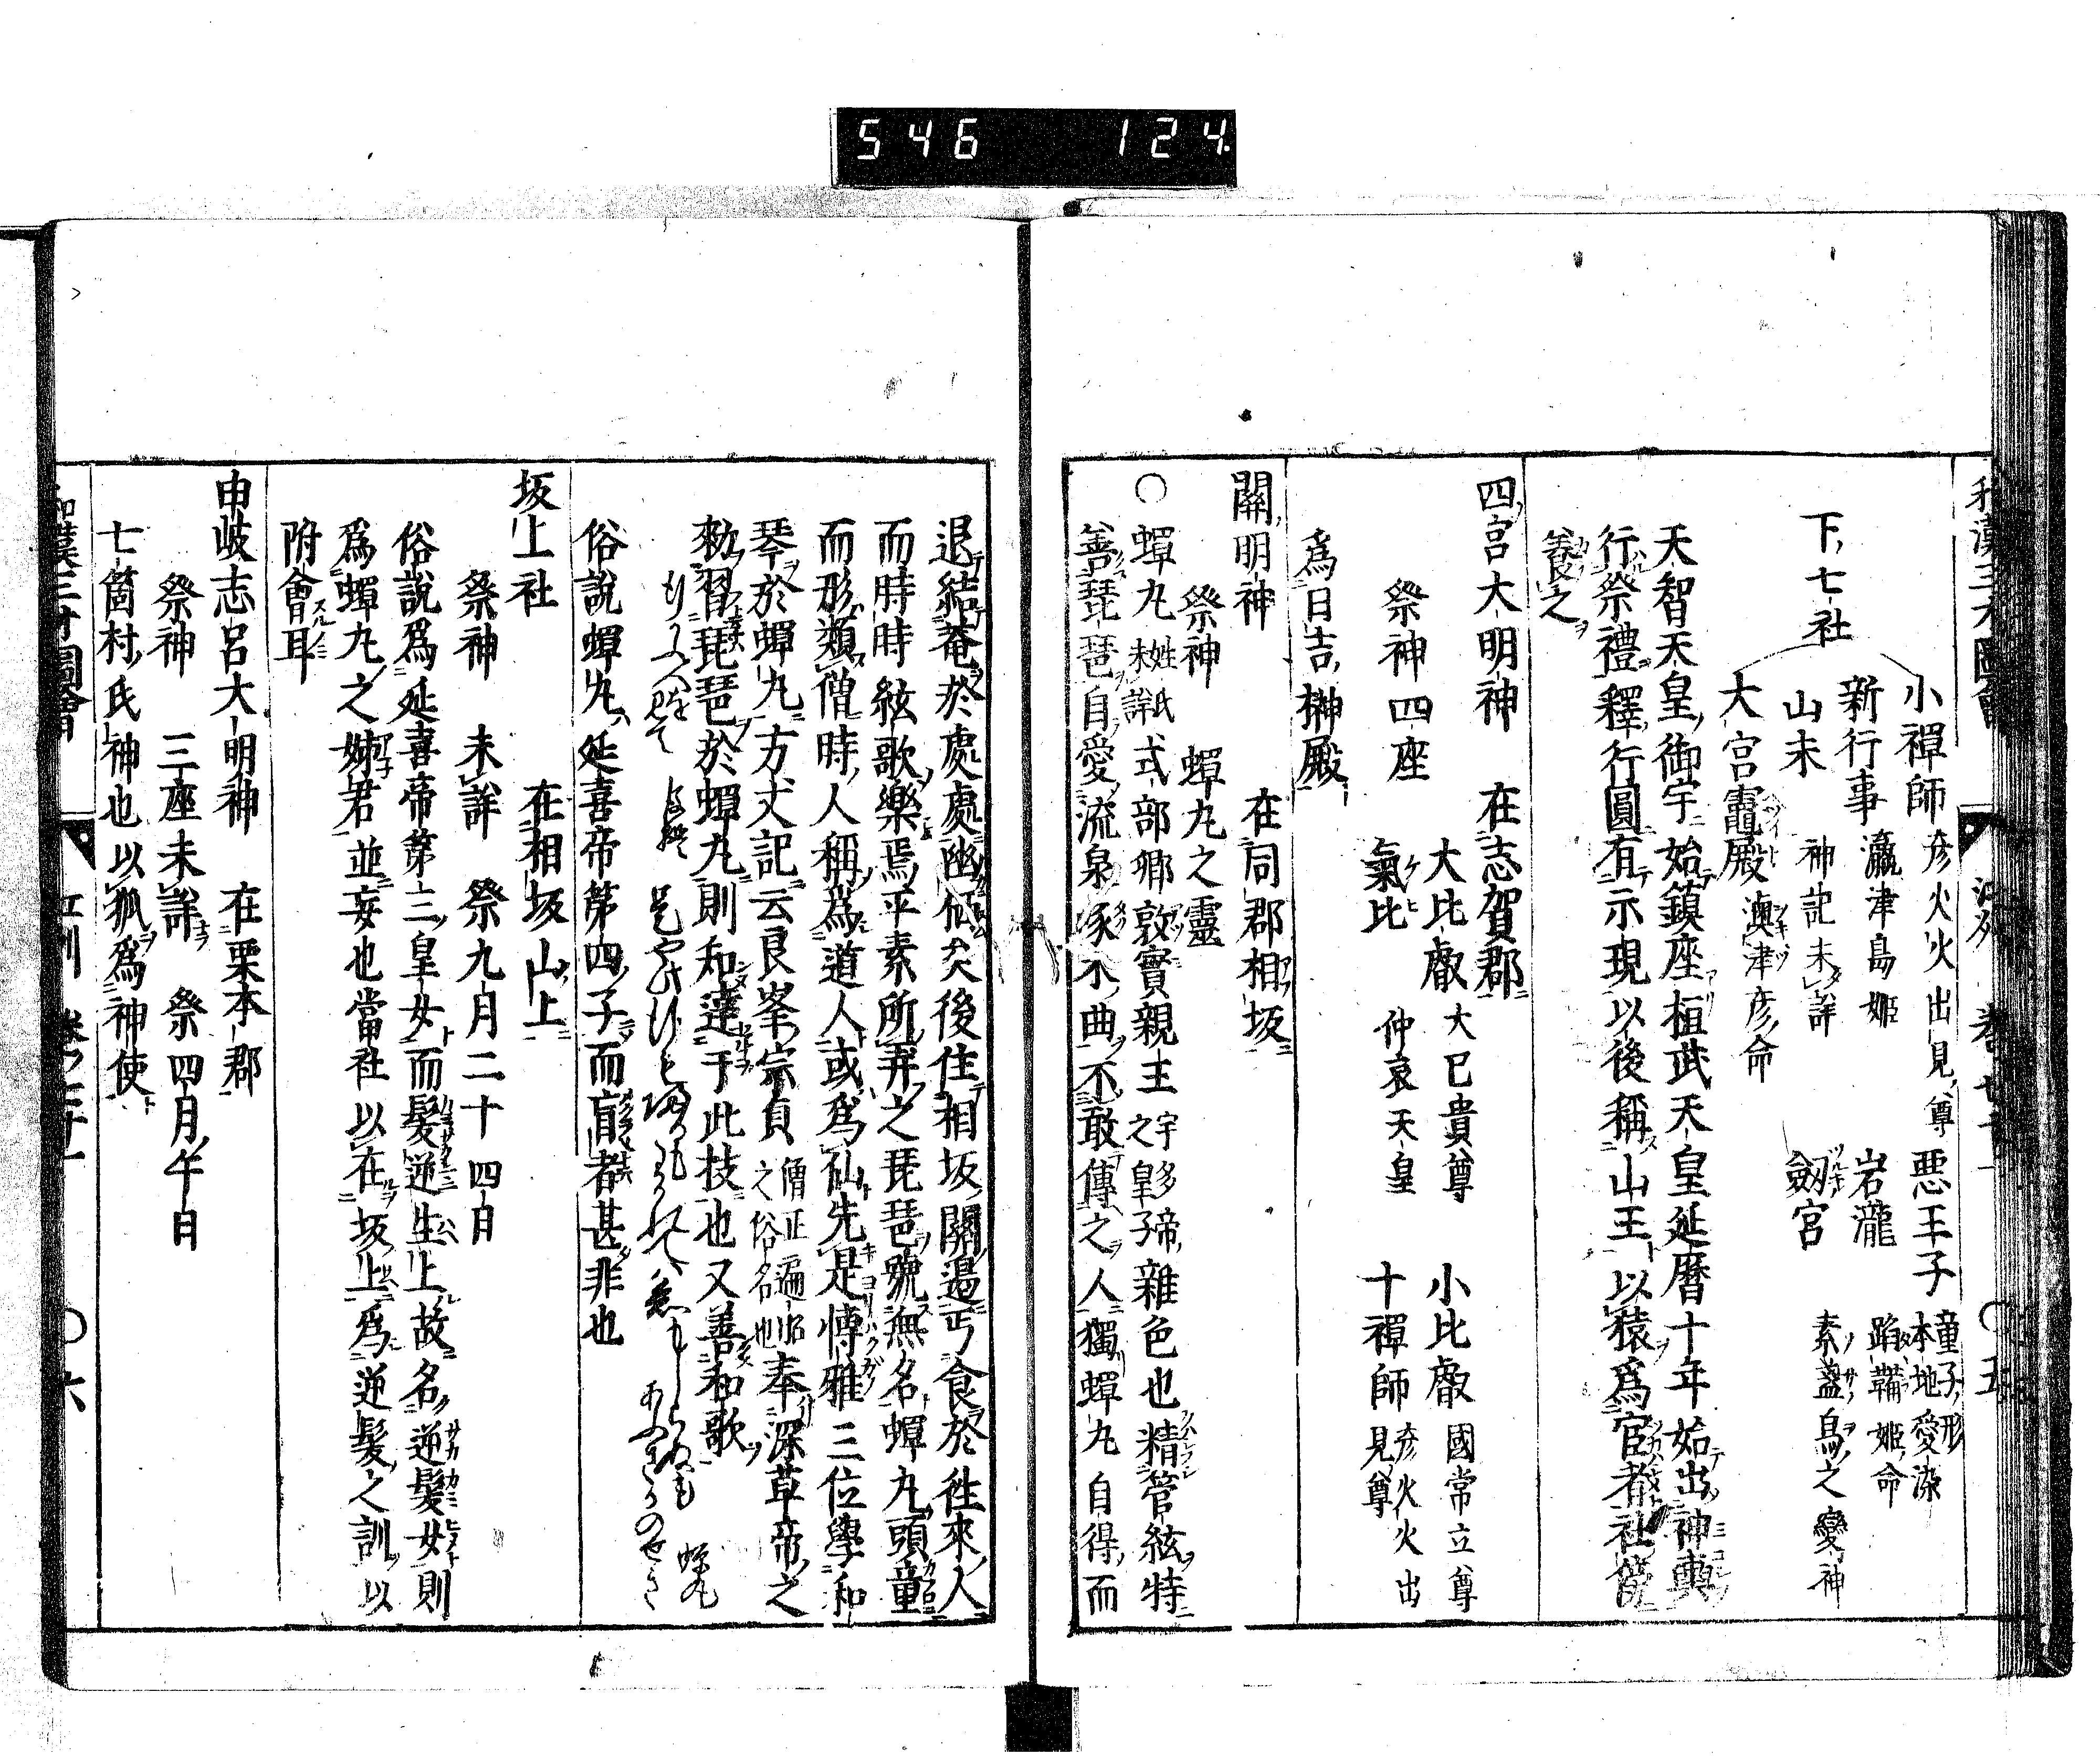 546 124.
和漢三才圖會 江州 卷七十一 ○五
小禪師 彦火火出見尊 惡王子 童子形本地愛染
新行事 瀛津島姫 岩瀧 蹈鞴姫命
下七社
山末 神記未詳 劔宮 素盞烏之變神
大宮竈殿 澳津彦命
天智天皇御宇始鎮座桓武天皇延曆十年始出神輿
行祭禮釋行圓有示現以後稱山王以猿爲官者社僧
養之
四宮大明神 在志賀郡
大比叡 大巳貴尊 小比叡 國常立尊
祭神四座
氣比 仲哀天皇 十禪師 彦火火出見尊
爲日吉榊殿
關明神 在同郡相坂
祭神 蟬丸之靈
○蟬丸 姓氏未詳 式部卿敦實親王 宇多帝之皇子 雜色也精管絃特
善琵琶自愛流泉啄木曲不敢傳之人獨蟬丸自得而
退結菴於處處幽棲矣後住相坂關邊丐食於徃來人
而時時絃歌樂焉平素所弄之琵琶號無名蟬丸頭童
而形類僧時人稱爲道人或爲仙先是博雅三位學和
琴於蟬丸方丈記云良峯宗貞 僧正遍昭之俗名也 奉深草帝之
勅習琵琶於蟬丸則和達于此技也又善和歌
後撰 是やこの行も帰るもわかれては しるもしらぬもあふさかのせき 蟬丸
俗說蟬丸延喜帝第四子而盲者甚非也
坂上社 在相坂山上
祭神 未詳 祭九月二十四日
俗說爲延喜帝第三皇女而髮逆生上故名逆髮女則
爲蟬丸之姉君並妄也當社以在坂上爲逆髮之訓以
附會耳
申岐志呂大明神 在栗本郡
祭神 三座未詳 祭四月午日
七箇村氏神也以狐爲神使
和漢三才圖會 江州 卷七十一 ○六